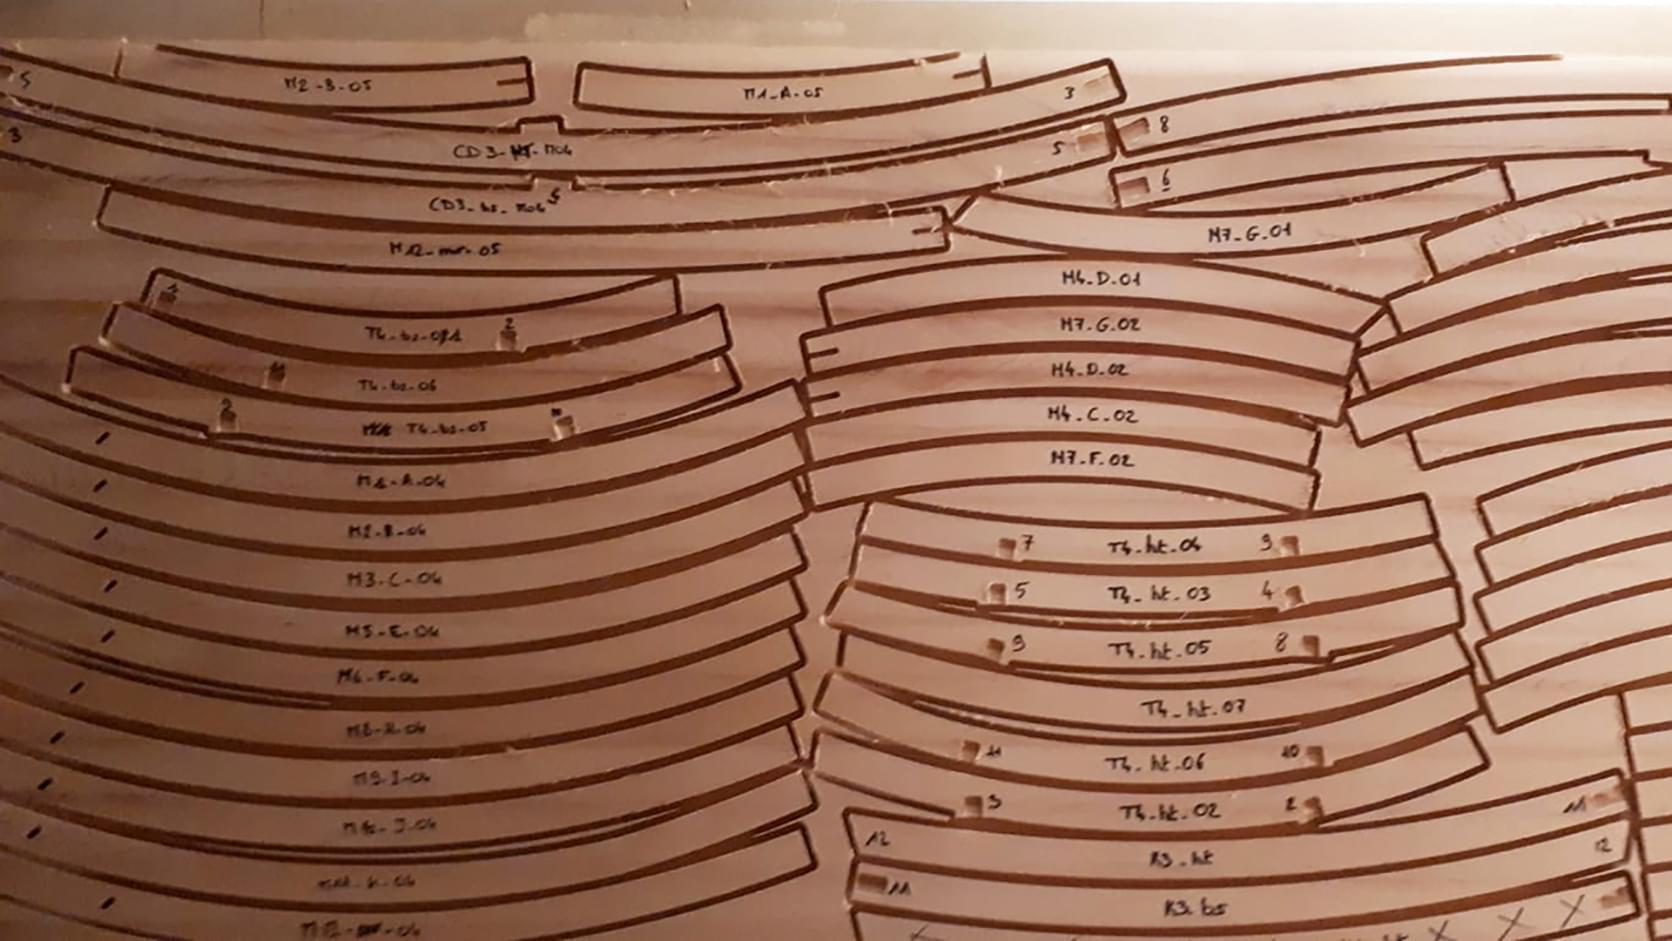 M2-B-05
M1-A-05
5
3
3
CD3-
M04
5
8
6
CD3-bs-M04
5
M12-mr-05
M7-G-01
1
2
T4-bs-
T4-bs-06
2
T4-bs-05
M4-D-01
M7-G-02
M4-D-02
M4-C-02
M7-F-02
M1-A-04
M2-B-04
M3-C-04
M5-E-04
M6-F-04
M9-I-04
7
T4-ht-04
9
5
T4-ht-03
4
9
T4-ht-05
8
T4-ht-07
11
T4-ht-06
10
3
T4-ht-02
2
12
R3-ht
11
12
11
R3-bs